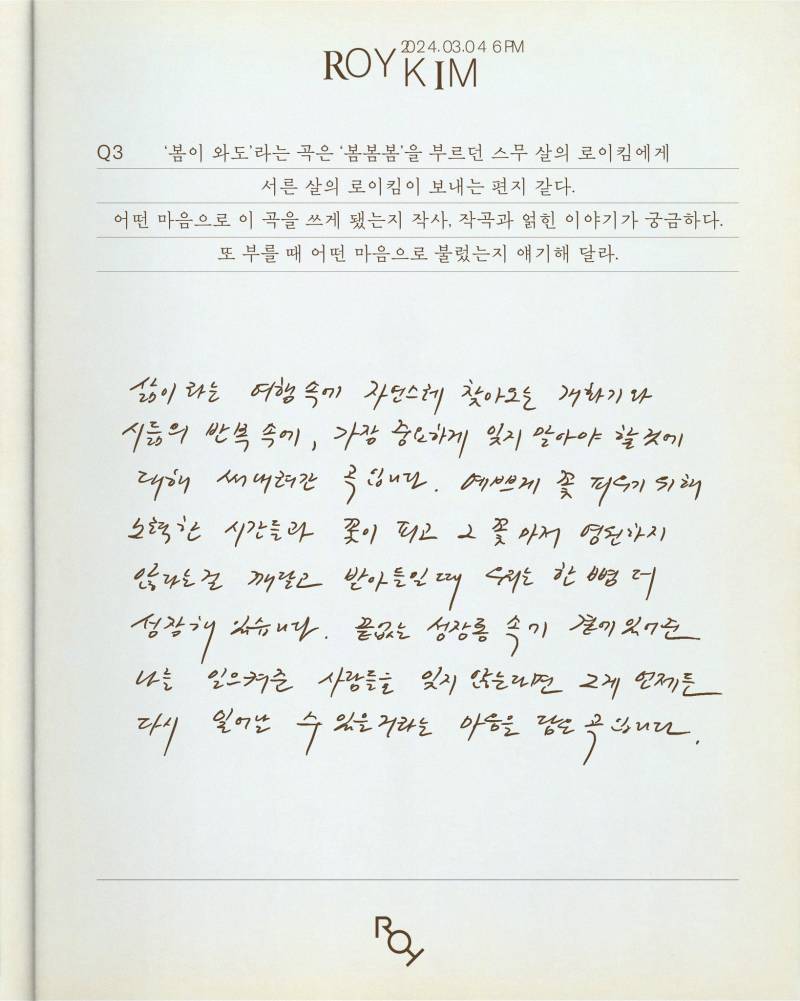 2024.03.04 6PM
ROY KIM
Q3 ‘봄이 와도’라는 곡은 ‘봄봄봄’을 부르던 스무 살의 로이킴에게
서른 살의 로이킴이 보내는 편지 같다.
어떤 마음으로 이 곡을 쓰게 됐는지 작사, 작곡과 얽힌 이야기가 궁금하다.
또 부를 때 어떤 마음으로 불렀는지 얘기해 달라.
삶이라는 여행 속에 자연스레 찾아오는 개화기와
시듦의 반복 속에, 가장 중요하게 잊지 말아야 할 것에
대해 써내려간 곡입니다. 예쁘게 꽃 피우기 위해
노력한 시간들과 꽃이 피고 그 꽃마저 영원하지
않다는걸 깨닫고 받아들일때 우리는 한 뼘 더
성장해 있습니다. 끝없는 성장통 속에 곁에 있어준
나를 일으켜준 사람들을 잊지 않는다면 그게 언제든
다시 일어날 수 있을거라는 마음을 담은 곡입니다.
ROY